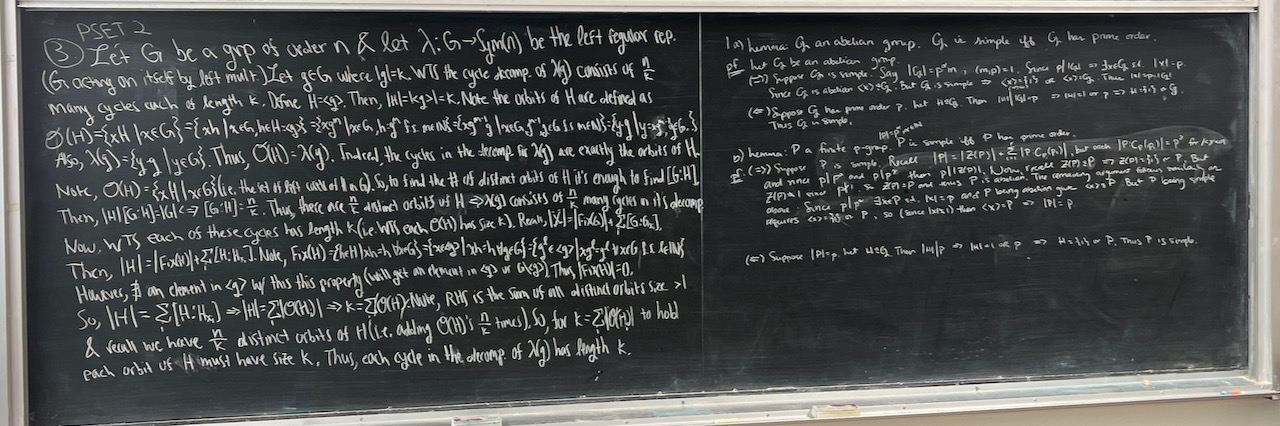 PSET 2
③ Let G be a grp of order n & let λ: G→Sym(n) be the left regular rep.
(G acting on itself by left mult.) Let g∈G where |g|=k. WTS the cycle decomp. of λ(g) consists of n/k
many cycles each of length k. Define H=<g>. Then, |H|=|<g>|=k. Note the orbits of H are defined as
O(H)={xH | x∈G}={xh | x∈G, h∈H=<g>}={xg^m | x∈G, h=g^m f.s. m∈N}
Also, λ(g)={y·g | y∈G}. Thus, O(H)=λ(g). Indeed the cycles in the decomp for λ(g) are exactly the orbits of H.
Note, O(H)={xH | x∈G} (i.e. the set of left cosets of H in G). So, to find the # of distinct orbits of H it's enough to find [G:H].
Then, |H|[G:H]=|G| ⟺ [G:H]=n/k. Thus, there are n/k distinct orbits of H ⟹ λ(g) consists of n/k many cycles in it's decomp.
Now, WTS each of these cycles has length k (i.e. WTS each O(H) has size k). Recall, |X|=|Fix(G)|+Σ[G:G_{x_i}].
Then, |H|=|Fix(H)|+Σ[H:H_{x_i}]. Note, Fix(H)={h∈H | xh=h ∀x∈G}={x∈<g> | xh=h ∀g∈G}
However, ∄ an element in <g> w/ this this property (will get an element in <g> or G\<g>). Thus, |Fix(H)|=0.
So, |H|=Σ[H:H_{x_i}] ⟹ |H|=Σ|O(H)| ⟹ k=Σ|O(H)|. Note, RHS is the sum of all distinct orbits size >1
& recall we have n/k distinct orbits of H (i.e. adding O(H)'s n/k times). So, for k=Σ|O(H)| to hold
each orbit of H must have size k. Thus, each cycle in the decomp. of λ(g) has length k.
1a) Lemma: G an abelian group. G is simple iff G has prime order.
pf. Let G be an abelian group.
(⟹) Suppose G is simple. Say |G|=p^α m, (m,p)=1. Since p||G| ⟹ ∃x∈G s.t. |x|=p.
Since G is abelian <x>⊴G. But G is simple ⟹ <x>={1} or <x>=G. Thus |G|=p.
(⟸) Suppose G has prime order p. Let H≤G. Then |H|||G|=p ⟹ |H|=1 or p ⟹ H={1} or G.
Thus G is simple.
b) Lemma: P a finite p-group. P is simple iff P has prime order.
pf: (⟹) Suppose P is simple. Recall |P|=|Z(P)|+Σ|P:C_P(g_i)|, but each |P:C_P(g_i)|=p^
and since p||P| and then p||Z(P)|. Now, ⟹ Z(P)={1} or P. But
Z(P)≠1 since so Z(P)=P and thus P is abelian. The remaining argument follows similarly as
above. Since p||P| ∃x∈P s.t. |x|=p and P being abelian gives <x>⊴P. But P being simple
requires <x>={1} or P, so (since |x|≠1) then <x>=P ⟹ |P|=p.
(⟸) Suppose |P|=p. Let H≤G. Then |H||p ⟹ |H|=1 or p ⟹ H={1} or P. Thus P is simple.